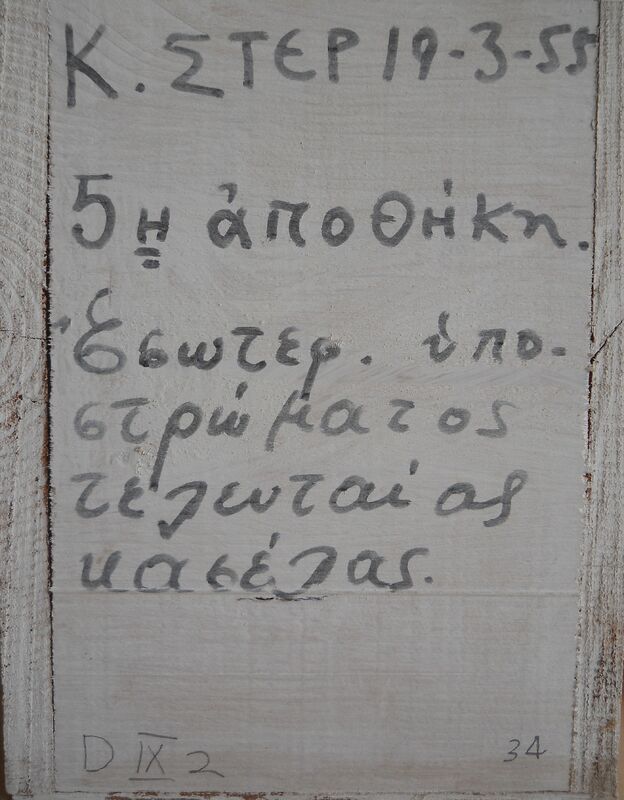 Κ. ΣΤΕΡ 19-3-55
5η ἀποθήκη.
Ἐσωτερ. ὑπο-
στρώματος
τελευταίας
κασέλας.
D IX 2 34